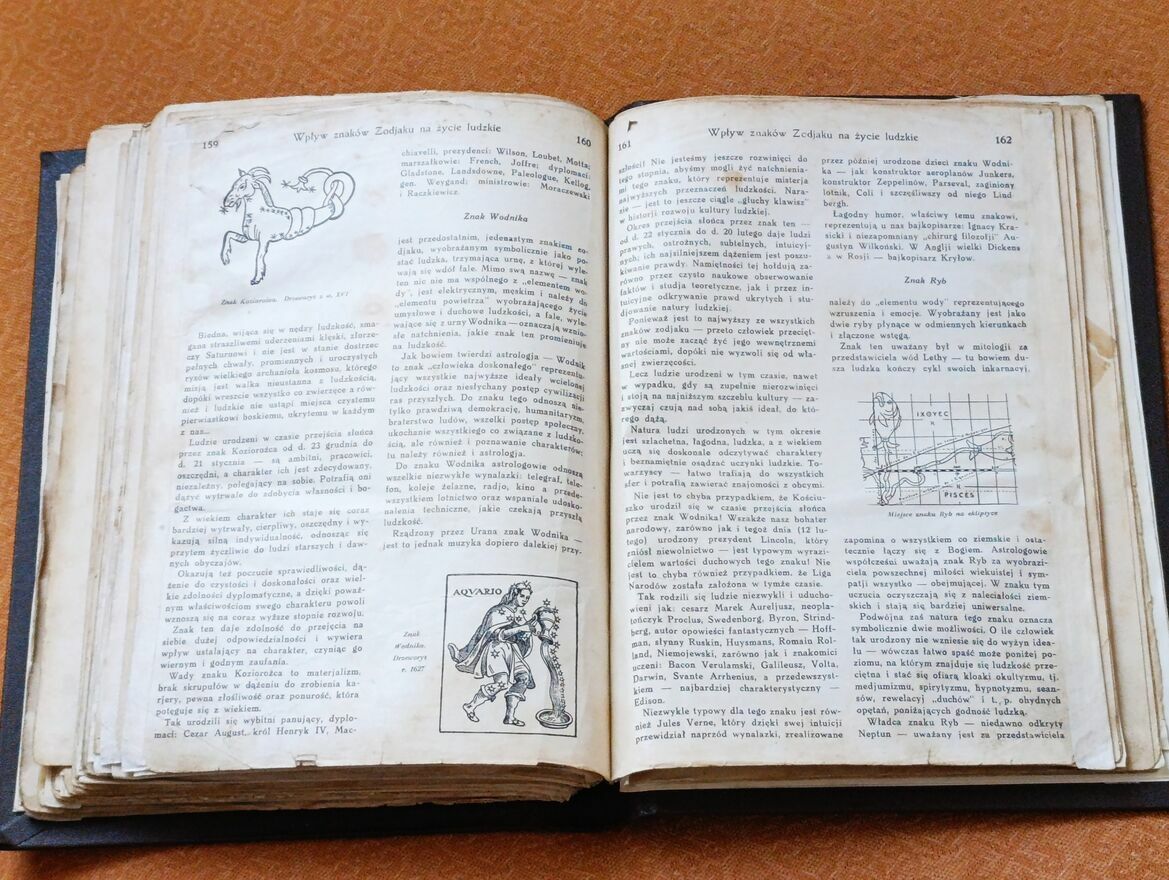 159
Wpływ znaków Zodjaku na życie ludzkie
160
Znak Koziorożca. Drzeworyt z w. XVI
Biedna, wijąca się w nędzy ludzkość, sma-
gana straszliwemi uderzeniami klęski, złorze-
czy Saturnowi i nie jest w stanie dostrzec
pełnych chwały, promiennych i uroczystych
ryzów wielkiego archanioła kosmosu, którego
misją jest walka nieustanna z ludzkością,
dopóki wreszcie wszystko co zwierzęce a rów-
nież i ludzkie nie ustąpi miejsca czystemu
pierwiastkowi boskiemu, ukrytemu w każdym
z nas...
Ludzie urodzeni w czasie przejścia słońca
przez znak Koziorożca od d. 23 grudnia do
d. 21 stycznia — są ambitni, pracowici,
oszczędni, a charakter ich jest zdecydowany,
niezależny, polegający na sobie. Potrafią oni
dążyć wytrwale do zdobycia własności i bo-
gactwa.
Z wiekiem charakter ich staje się coraz
bardziej wytrwały, cierpliwy, oszczędny i wy-
kazują silną indywidualność, odnosząc się
przytem życzliwie do ludzi starszych i daw-
nych obyczajów.
Okazują też poczucie sprawiedliwości, dą-
żenie do czystości i doskonałości oraz wiel-
kie zdolności dyplomatyczne, a dzięki poważ-
nym właściwościom swego charakteru powoli
wznoszą się na coraz wyższe stopnie rozwoju.
Znak ten daje zdolność do przejęcia na
siebie dużej odpowiedzialności i wywiera
wpływ ustalający na charakter, czyniąc go
wiernym i godnym zaufania.
Wady znaku Koziorożca to materjalizm,
brak skrupułów w dążeniu do zrobienia ka-
rjery, pewna złośliwość oraz ponurość, która
potęguje się z wiekiem.
Tak urodzili się wybitni panujący, dyplo-
maci: Cezar August, król Henryk IV, Mac-
chiavelli, prezydenci: Wilson, Loubet, Motta;
marszałkowie: French, Joffre; dyplomaci:
Gladstone, Landsdowne, Paleologue, Kellog,
gen. Weygand; ministrowie: Moraczewski
i Raczkiewicz.
Znak Wodnika
jest przedostatnim, jedenastym znakiem zo-
djaku, wyobrażanym symbolicznie jako po-
stać ludzka, trzymająca urnę, z której wyle-
wają się wdół fale. Mimo swą nazwę — znak
ten nic nie ma wspólnego z „elementem wo-
dy", jest elektrycznym, męskim i należy do
„elementu powietrza" wyobrażającego życie
umysłowe i duchowe ludzkości, a fale, wyle-
wające się z urny Wodnika — oznaczają wznio-
słe natchnienia, jakie znak ten promieniuje
na ludzkość.
Jak bowiem twierdzi astrologja — Wodnik
to znak „człowieka doskonałego" reprezentu-
jący wszystkie najwyższe ideały wcielonej
ludzkości oraz niesłychany postęp cywilizacji
ras przyszłych. Do znaku tego odnoszą nie-
tylko prawdziwą demokrację, humanitaryzm,
braterstwo ludów, wszelki postęp społeczny,
ukochanie wszystkiego co związane z ludzko-
ścią, ale również i poznawanie charakterów;
tu należy również i astrologja.
Do znaku Wodnika astrologowie odnoszą
wszelkie niezwykłe wynalazki: telegraf, tele-
fon, koleje żelazne, radjo, kino a przede-
wszystkiem lotnictwo oraz wspaniałe udosko-
nalenia techniczne, jakie czekają przyszłą
ludzkość.
Rządzony przez Urana znak Wodnika —
jest to jednak muzyka dopiero dalekiej przy-
Znak
Wodnika.
Drzeworyt
r. 1627
AQVARIO
161
Wpływ znaków Zodjaku na życie ludzkie
162
szłości! Nie jesteśmy jeszcze rozwinięci do
tego stopnia, abyśmy mogli żyć natchnienia-
mi tego znaku, który reprezentuje misterja
najwyższych przeznaczeń ludzkości. Nara-
zie — jest to jeszcze ciągle „głuchy klawisz"
w historji rozwoju kultury ludzkiej.
Okres przejścia słońca przez znak ten —
od d. 22 stycznia do d. 20 lutego daje ludzi
prawych, ostrożnych, subtelnych, intuicyj-
nych; ich najsilniejszem dążeniem jest poszu-
kiwanie prawdy. Namiętności tej hołdują za-
równo przez czysto naukowe obserwowanie
faktów i studja teoretyczne, jak i przez in-
tuicyjne odkrywanie prawd ukrytych i stu-
djowanie natury ludzkiej.
Ponieważ jest to najwyższy ze wszystkich
znaków zodjaku — przeto człowiek przecięt-
ny nie może zacząć żyć jego wewnętrznemi
wartościami, dopóki nie wyzwoli się od wła-
snej zwierzęcości.
Lecz ludzie urodzeni w tym czasie, nawet
w wypadku, gdy są zupełnie nierozwinięci
i stoją na najniższym szczeblu kultury — za-
zwyczaj czują nad sobą jakiś ideał, do któ-
rego dążą.
Natura ludzi urodzonych w tym okresie
jest szlachetna, łagodna, ludzka, a z wiekiem
uczą się doskonale odczytywać charaktery
i beznamiętnie osądzać uczynki ludzkie. To-
warzyscy — łatwo trafiają do wszystkich
sfer i potrafią zawierać znajomości z obcymi.
Nie jest to chyba przypadkiem, że Kościu-
szko urodził się w czasie przejścia słońca
przez znak Wodnika! Wszakże nasz bohater
narodowy, zarówno jak i tegoż dnia (12 lu-
tego) urodzony prezydent Lincoln, który
zniósł niewolnictwo — jest typowym wyrazi-
cielem wartości duchowych tego znaku! Nie
jest to chyba również przypadkiem, że Liga
Narodów została założona w tymże czasie.
Tak rodzili się ludzie niezwykli i uducho-
wieni jak: cesarz Marek Aureljusz, neopla-
tończyk Proclus, Swedenborg, Byron, Strind-
berg, autor opowieści fantastycznych — Hoff-
man, słynny Ruskin, Huysmans, Romain Rol-
land, Niemojewski, zarówno jak i znakomici
uczeni: Bacon Verulamski, Galileusz, Volta,
Darwin, Svante Arrhenius, a przedewszyst-
kiem — najbardziej charakterystyczny —
Edison.
Niezwykle typowy dla tego znaku jest rów-
nież Jules Verne, który dzięki swej intuicji
przewidział naprzód wynalazki, zrealizowane
przez później urodzone dzieci znaku Wodni-
ka — jak: konstruktor aeroplanów Junkers,
konstruktor Zeppelinów, Parseval, zaginiony
lotnik, Coli i szczęśliwszy od niego Lind
bergh.
Łagodny humor, właściwy temu znakowi,
reprezentują u nas bajkopisarze: Ignacy Kra-
sicki i niezapomniany „chirurg filozofji" Au-
gustyn Wilkoński. W Anglji wielki Dickens
a w Rosji — bajkopisarz Kryłow.
Znak Ryb
należy do „elementu wody" reprezentującego
wzruszenia i emocje. Wyobrażany jest jako
dwie ryby płynące w odmiennych kierunkach
i złączone wstęgą.
Znak ten uważany był w mitologji za
przedstawiciela wód Lethy — tu bowiem du-
sza ludzka kończy cykl swoich inkarnacyj,
IXOYEC
PISCES
Miejsce znaku Ryb na ekliptyce
zapomina o wszystkiem co ziemskie i osta-
tecznie łączy się z Bogiem. Astrologowie
współcześni uważają znak Ryb za wyobrazi-
ciela powszechnej miłości wiekuistej i sym-
patji wszystko — obejmującej. W znaku tym
uczucia oczyszczają się z naleciałości ziem-
skich i stają się bardziej uniwersalne.
Podwójna zaś natura tego znaku oznacza
symbolicznie dwie możliwości. O ile człowiek
tak urodzony nie wzniesie się do wyżyn idea-
łu — wówczas łatwo spaść może poniżej po-
ziomu, na którym znajduje się ludzkość prze-
ciętna i stać się ofiarą kloaki okultyzmu, tj.
medjumizmu, spirytyzmu, hypnotyzmu, sean-
sów, rewelacyj „duchów" i t. p. ohydnych
opętań, poniżających godność ludzką.
Władca znaku Ryb — niedawno odkryty
Neptun — uważany jest za przedstawiciela